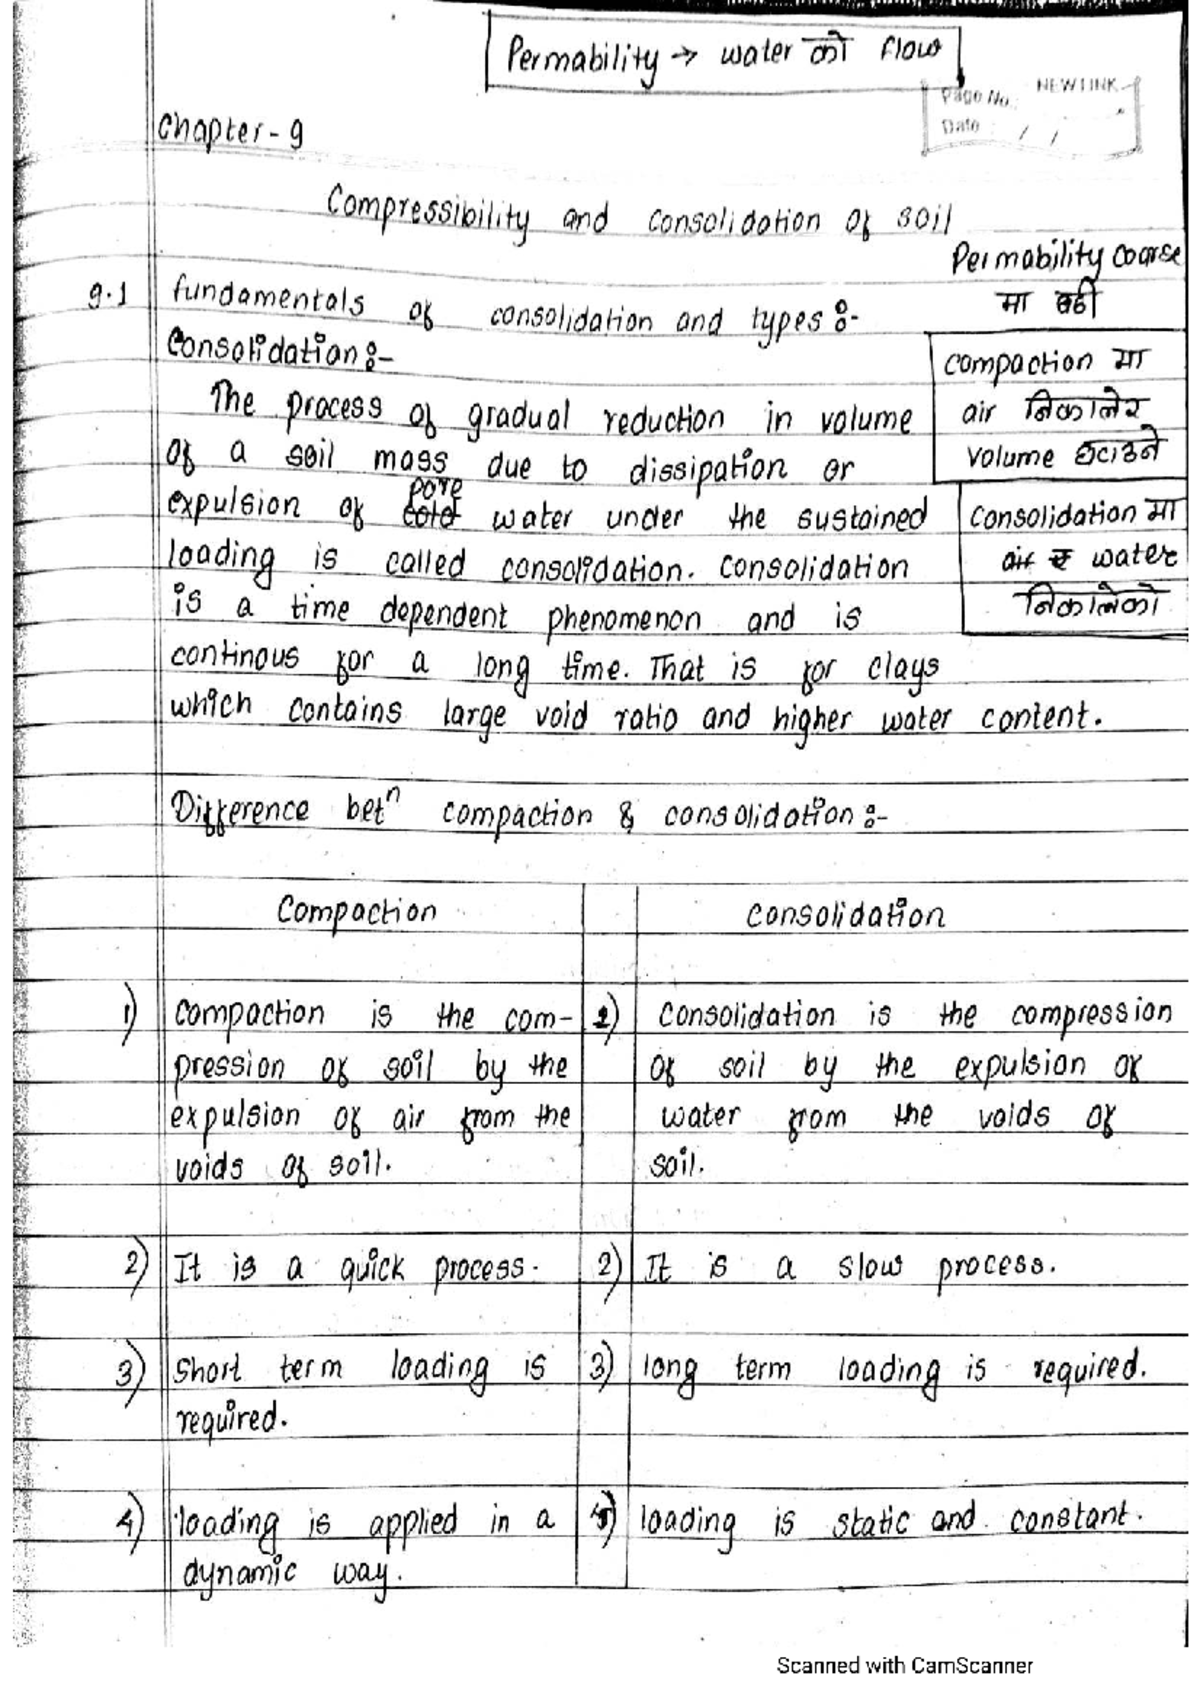 Permability → water को flow
NEWLINK
Page No.:
Date : / /
Chapter-9
Compressibility and consolidation of soil
Permability coarse
मा बढी
9.1 fundamentals of consolidation and types :-
Consolidation :-
compaction मा
air निकालेर
volume घटाउने
The process of gradual reduction in volume
of a soil mass due to dissipation or
pore
expulsion of water under the sustained
consolidation मा
air र water
निकालेको
loading is called consolidation. consolidation
is a time dependent phenomenon and is
continous for a long time. That is for clays
which contains large void ratio and higher water content.
Difference betn compaction & consolidation :-
Compaction
Consolidation
1) compaction is the com-
pression of soil by the
expulsion of air from the
voids of soil.
1) consolidation is the compression
of soil by the expulsion of
water from the voids of
soil.
2) It is a quick process.
2) It is a slow process.
3) short term loading is
required.
3) long term loading is required.
4) loading is applied in a
dynamic way.
4) loading is static and constant.
Scanned with CamScanner